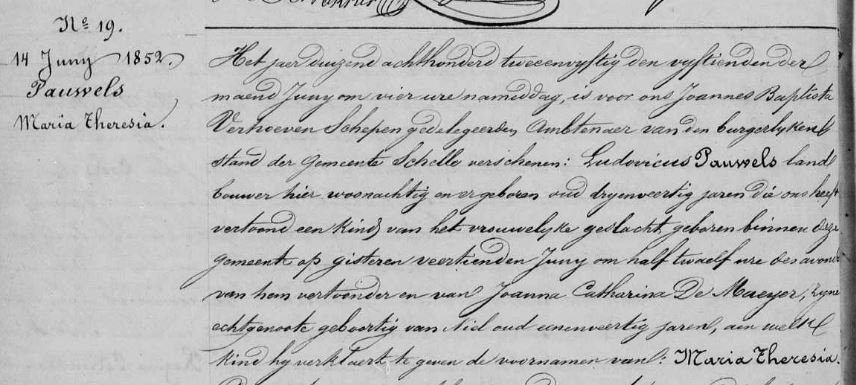 Nº 19.
14 Juny 1852.
Pauwels
Maria Theresia.
Het jaer duizend achthonderd tweeenvyftig den vyftienden der
maend Juny om vier ure namiddag, is voor ons Joannes Baptista
Verhoeven Schepen gedelegeerden Ambtenaer van den burgerlyken
stand der gemeente Schelle verschenen: Ludovicus Pauwels land
bouwer hier woonachtig en er geboren oud dryenveertig jaren die ons heeft
vertoond een kind van het vrouwelyke geslacht, geboren binnen deze
gemeente op gisteren veertienden Juny om half twaelf ure des avonds
van hem vertoonder en van Joanna Catharina De Maeyer, zyne
echtgenoote geboortig van Niel oud eenenveertig jaren, aen welk
kind hy verklaert te geven de voornamen van: Maria Theresia.